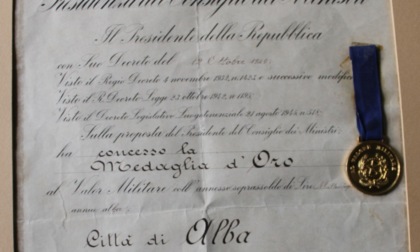 Presidenza del Consiglio dei Ministri
Il Presidente della Repubblica
con Suo Decreto del
Visto il Regio Decreto 4 novembre 1932, n. 1423 e successive modifica
Visto il R. Decreto Legge 23 ottobre 1942, n. 1195
Visto il Decreto Legislativo Luogotenenziale 21 agosto 1945, n. 518
Sulla proposta del Presidente del Consiglio dei Ministri
ha concesso la
Medaglia d'Oro
al Valor Militare coll'annesso soprassoldo di Lire
annue alla
Città di Alba